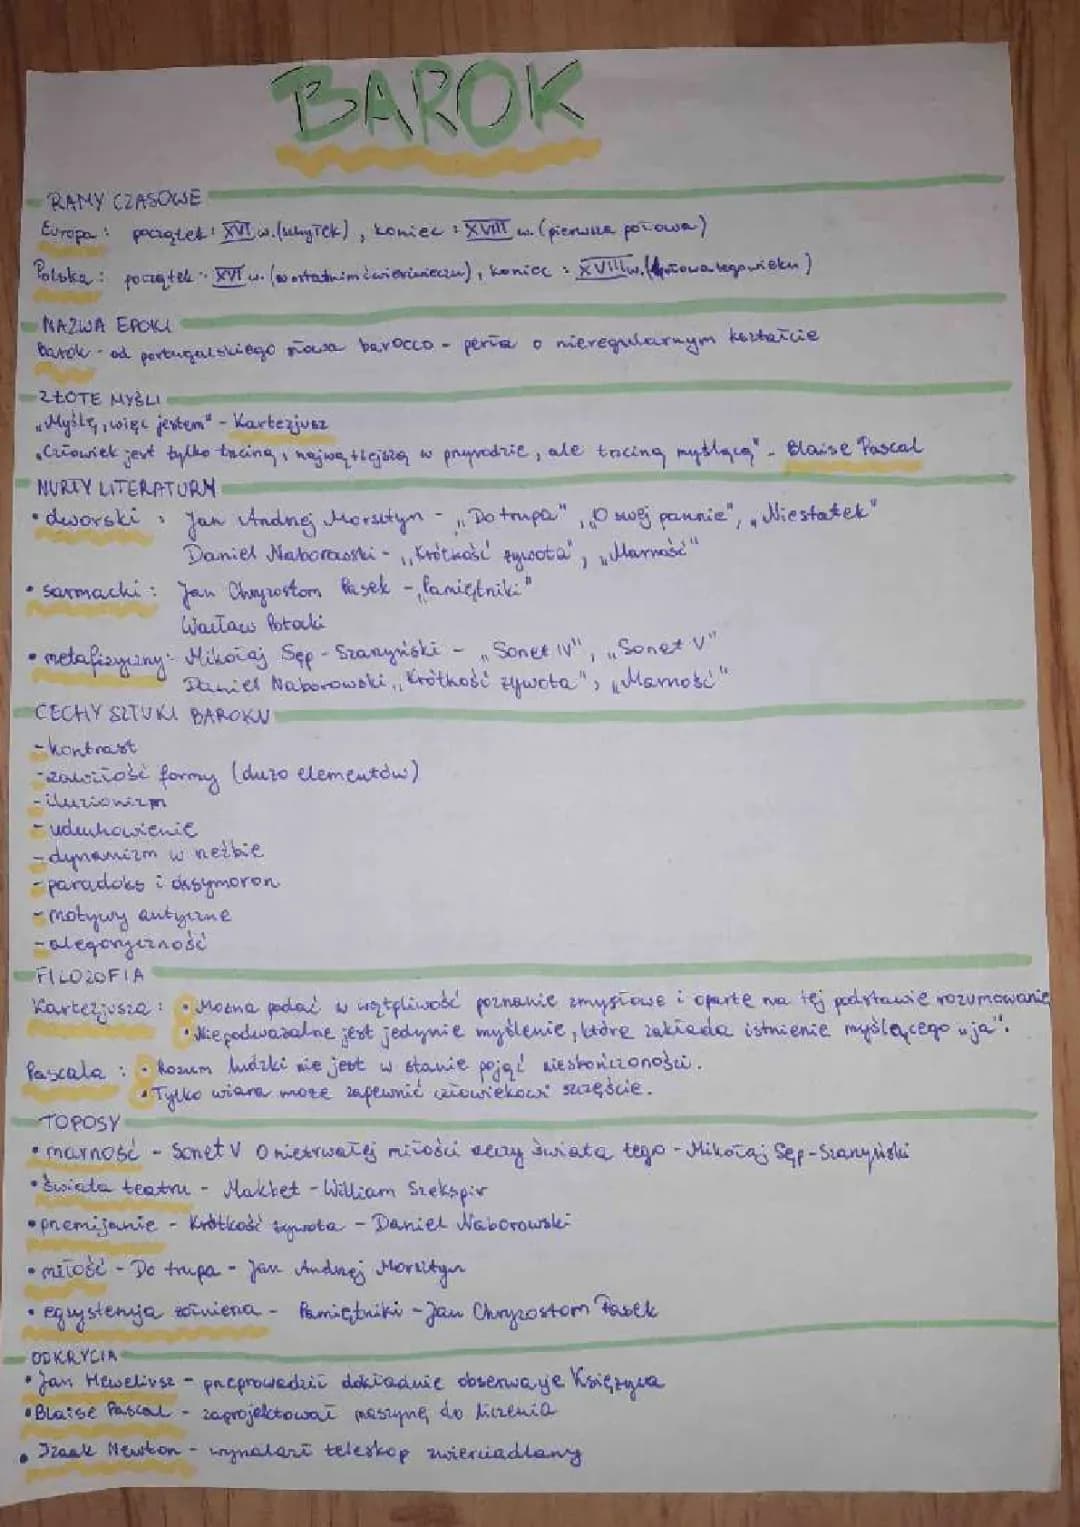 BAROK
RAMY CZASOWE
Europa: początek: XVI w. (schyłek), koniec: XVIII w. (pierwsza połowa)
Polska: początek: XVI w. (w ostatnim ćwierćwieczu), koniec: XVIII w. (połowa tego wieku)
NAZWA EPOKI
Barok - od portugalskiego słowa barocco - perła o nieregularnym kształcie
ZŁOTE MYŚLI
„Myślę, więc jestem" - Kartezjusz
„Człowiek jest tylko trzciną, najwątlejszą w przyrodzie, ale trzciną myślącą" - Blaise Pascal
NURTY LITERATURY
• dworski: Jan Andrzej Morsztyn - „Do trupa", „O swej pannie", „Niestatek"
Daniel Naborowski - „Krótkość żywota", „Marność"
• sarmacki: Jan Chryzostom Pasek - „Pamiętniki"
Wacław Potocki
• metafizyczny: Mikołaj Sęp-Szarzyński - „Sonet IV", „Sonet V"
Daniel Naborowski „Krótkość żywota", „Marność"
CECHY SZTUKI BAROKU
- kontrast
- zawiłość formy (dużo elementów)
- iluzionizm
- uduchowienie
- dynamizm w rzeźbie
- paradoks i oksymoron
- motywy antyczne
- alegoryczność
FILOZOFIA
Kartezjusza: • Można podać w wątpliwość poznanie zmysłowe i oparte na tej podstawie rozumowanie
• Niepodważalne jest jedynie myślenie, które zakłada istnienie myślącego „ja".
Pascala: • Rozum ludzki nie jest w stanie pojąć nieskończoności.
• Tylko wiara może zapewnić człowiekowi szczęście.
TOPOSY
• marność - Sonet V O nietrwałej miłości rzeczy świata tego - Mikołaj Sęp-Szarzyński
• świata teatru - Makbet - William Szekspir
• przemijanie - Krótkość żywota - Daniel Naborowski
• miłość - Do trupa - Jan Andrzej Morsztyn
• egzystencja żołnierza - Pamiętniki - Jan Chryzostom Pasek
ODKRYCIA
• Jan Heweliusz - przeprowadził dokładnie obserwacje Księżyca
• Blaise Pascal - zaprojektował maszynę do liczenia
• Izaak Newton - wynalazł teleskop zwierciadlany